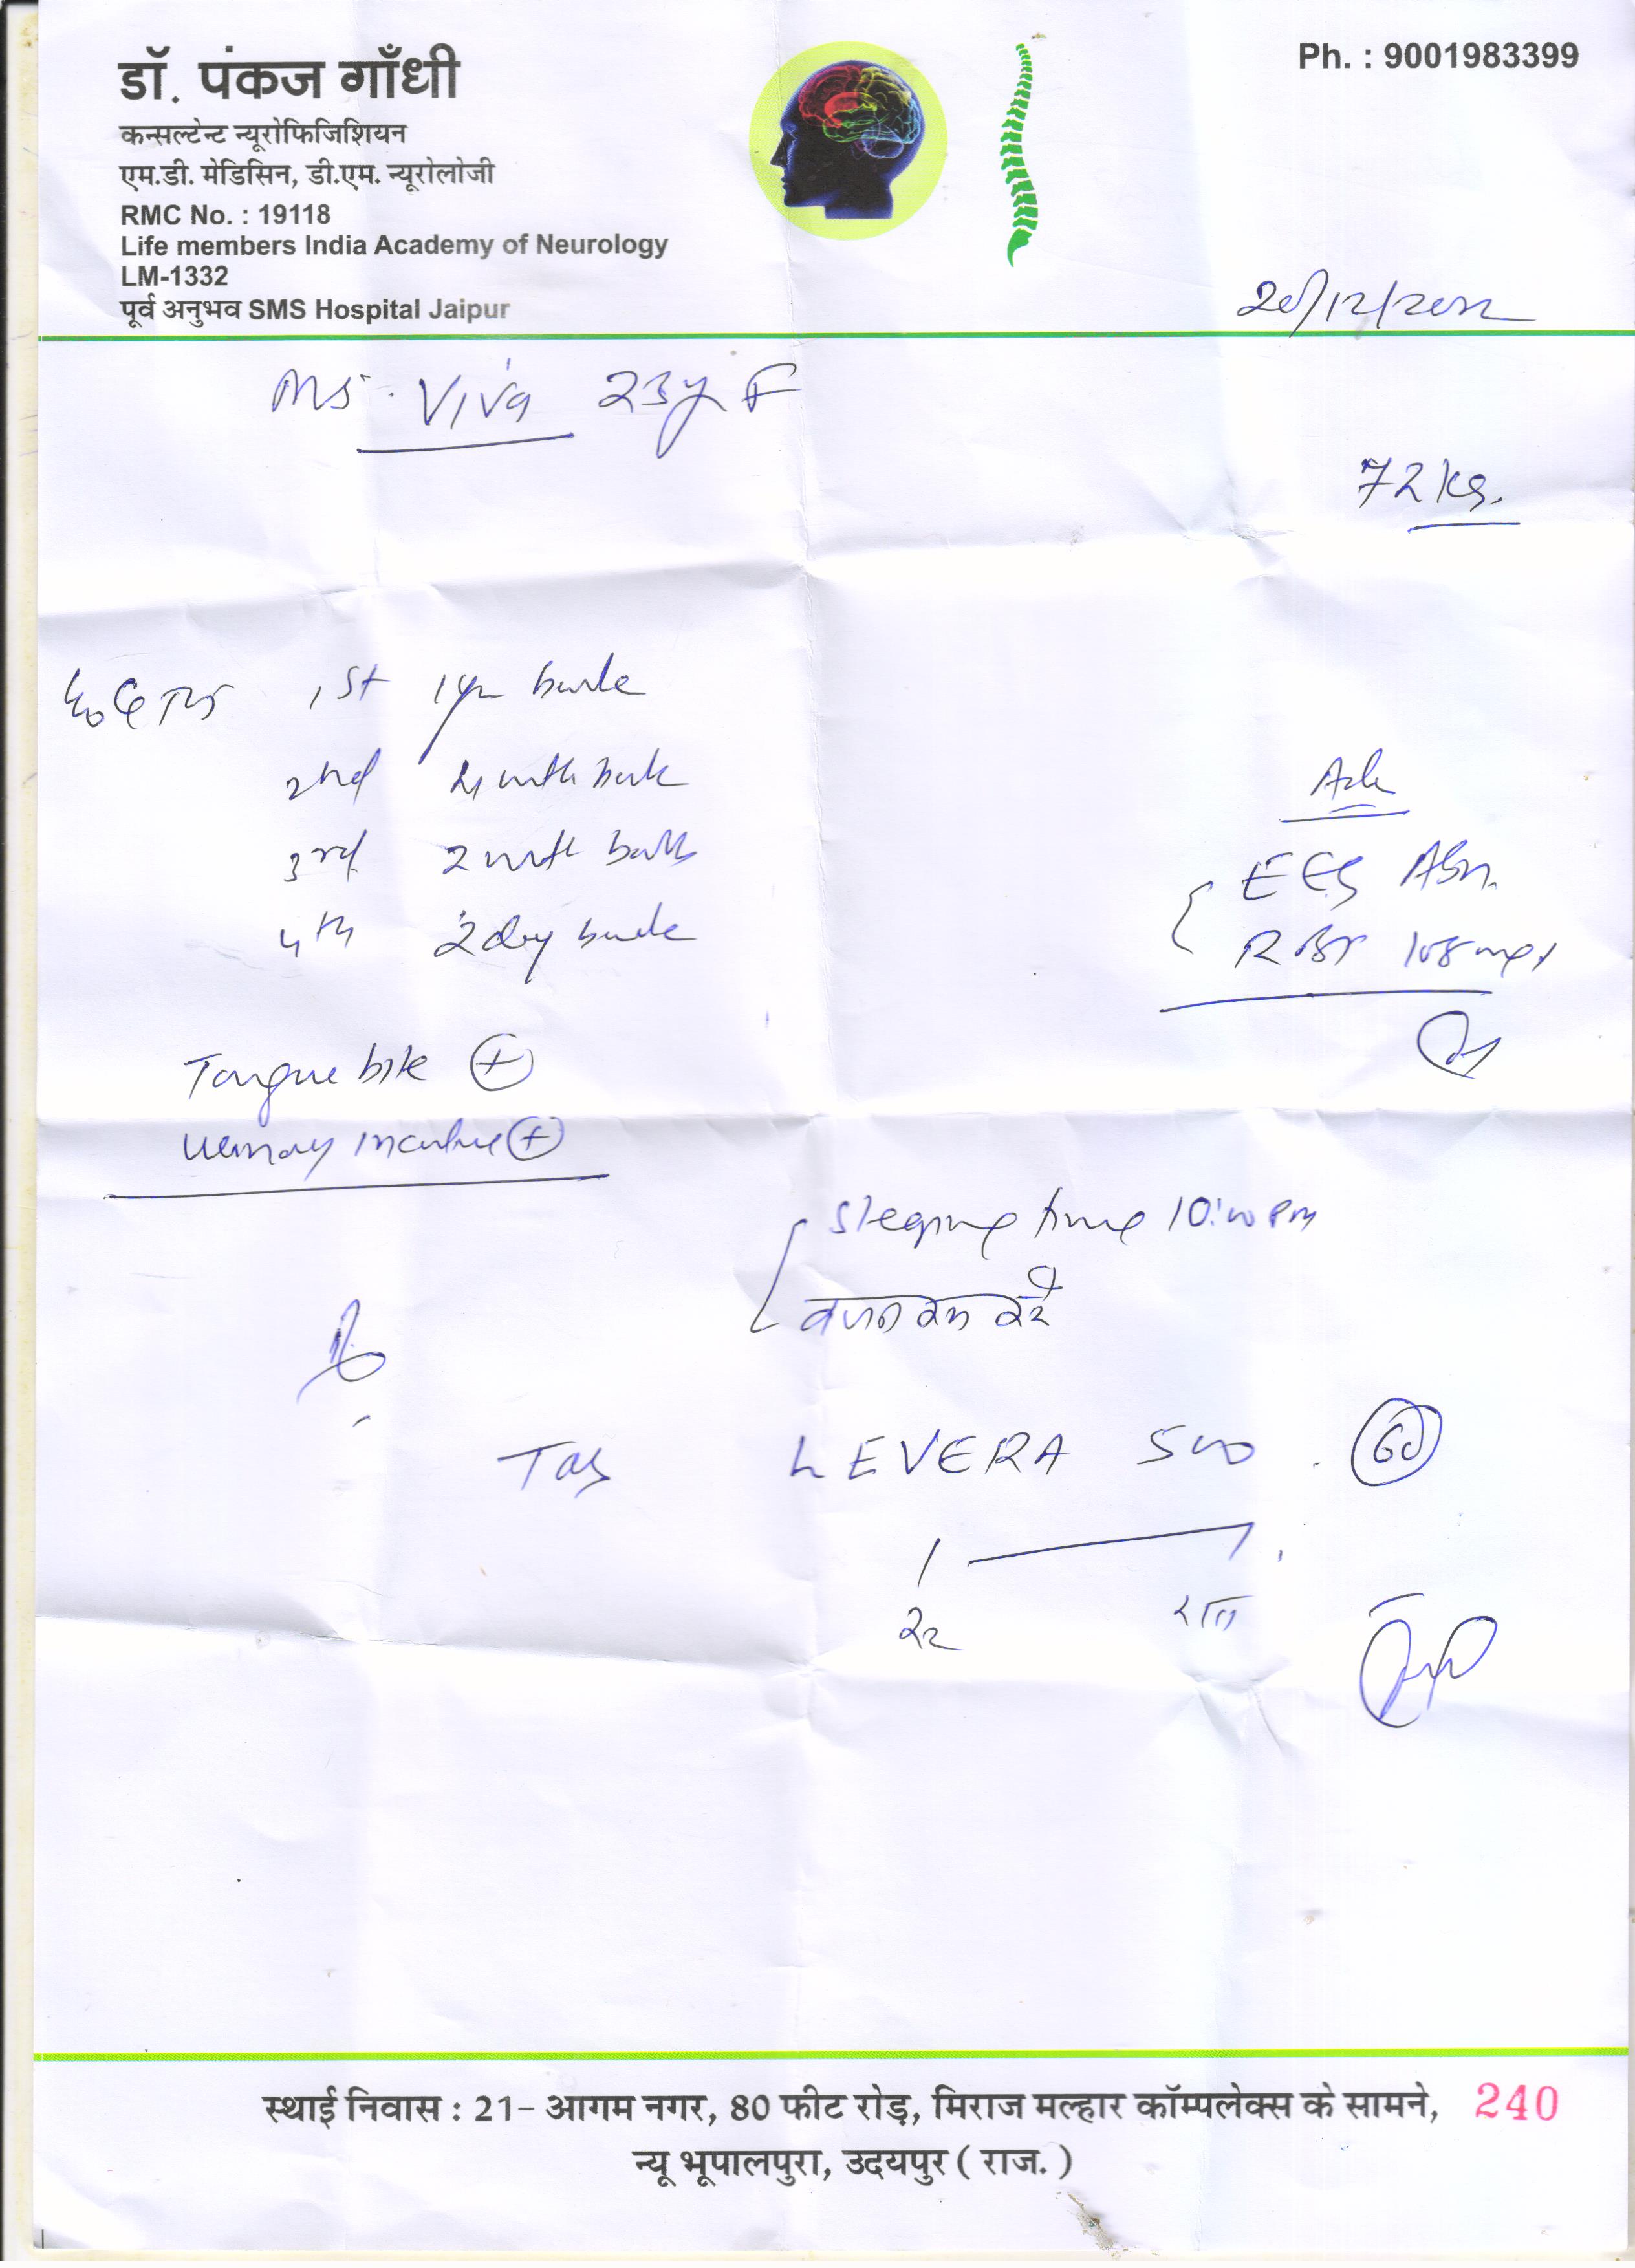 डॉ. पंकज गाँधी
कन्सल्टेन्ट न्यूरोफिजिशियन
एम.डी. मेडिसिन, डी.एम. न्यूरोलोजी
RMC No. : 19118
Life members India Academy of Neurology
LM-1332
पूर्व अनुभव SMS Hospital Jaipur
Ph. : 9001983399
Ms. Viva 23y F
72 kg.
1st 1yr back
2nd 4 mth back
3rd 2 mth back
4th 2 day back
EEG Abn.
RBS 108 mg
Tongue bite +
Sleeping time 10:00 PM
Tab LEVERA 500 60
1 — 1
स्थाई निवास : 21- आगम नगर, 80 फीट रोड़, मिराज मल्हार कॉम्पलेक्स के सामने, 240
न्यू भूपालपुरा, उदयपुर ( राज. )